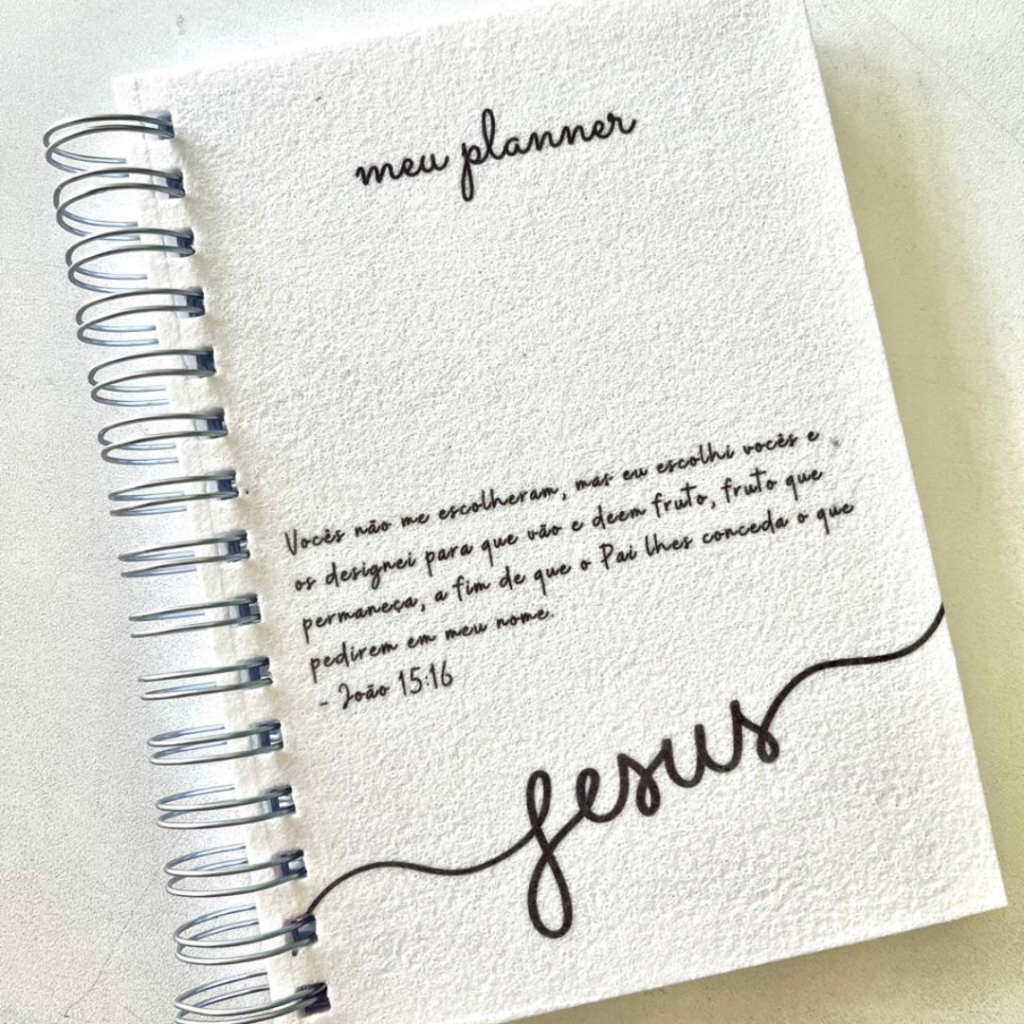 meu planner
Vocês não me escolheram, mas eu escolhi vocês e
os designei para que vão e deem fruto, fruto que
permaneça, a fim de que o Pai lhes conceda o que
pedirem em meu nome.
- João 15:16
Jesus